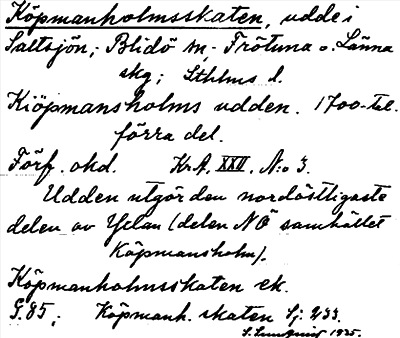 Köpmanholmsskaten, udde i
Saltsjön; Blidö sn, Frötuna o. Länna
skg; Sthlms l.
Kiöpmansholms udden. 1700-tal.
förra del.
Förf. okd. Kr.A. XXII, N:o 3.
Udden utgör den nordöstligaste
delen av Yxlan (delen NÖ samhället
Köpmansholm).
Köpmanholmsskaten ek.
G.85; Köpmanh. skaten Sj: 233.
1925.